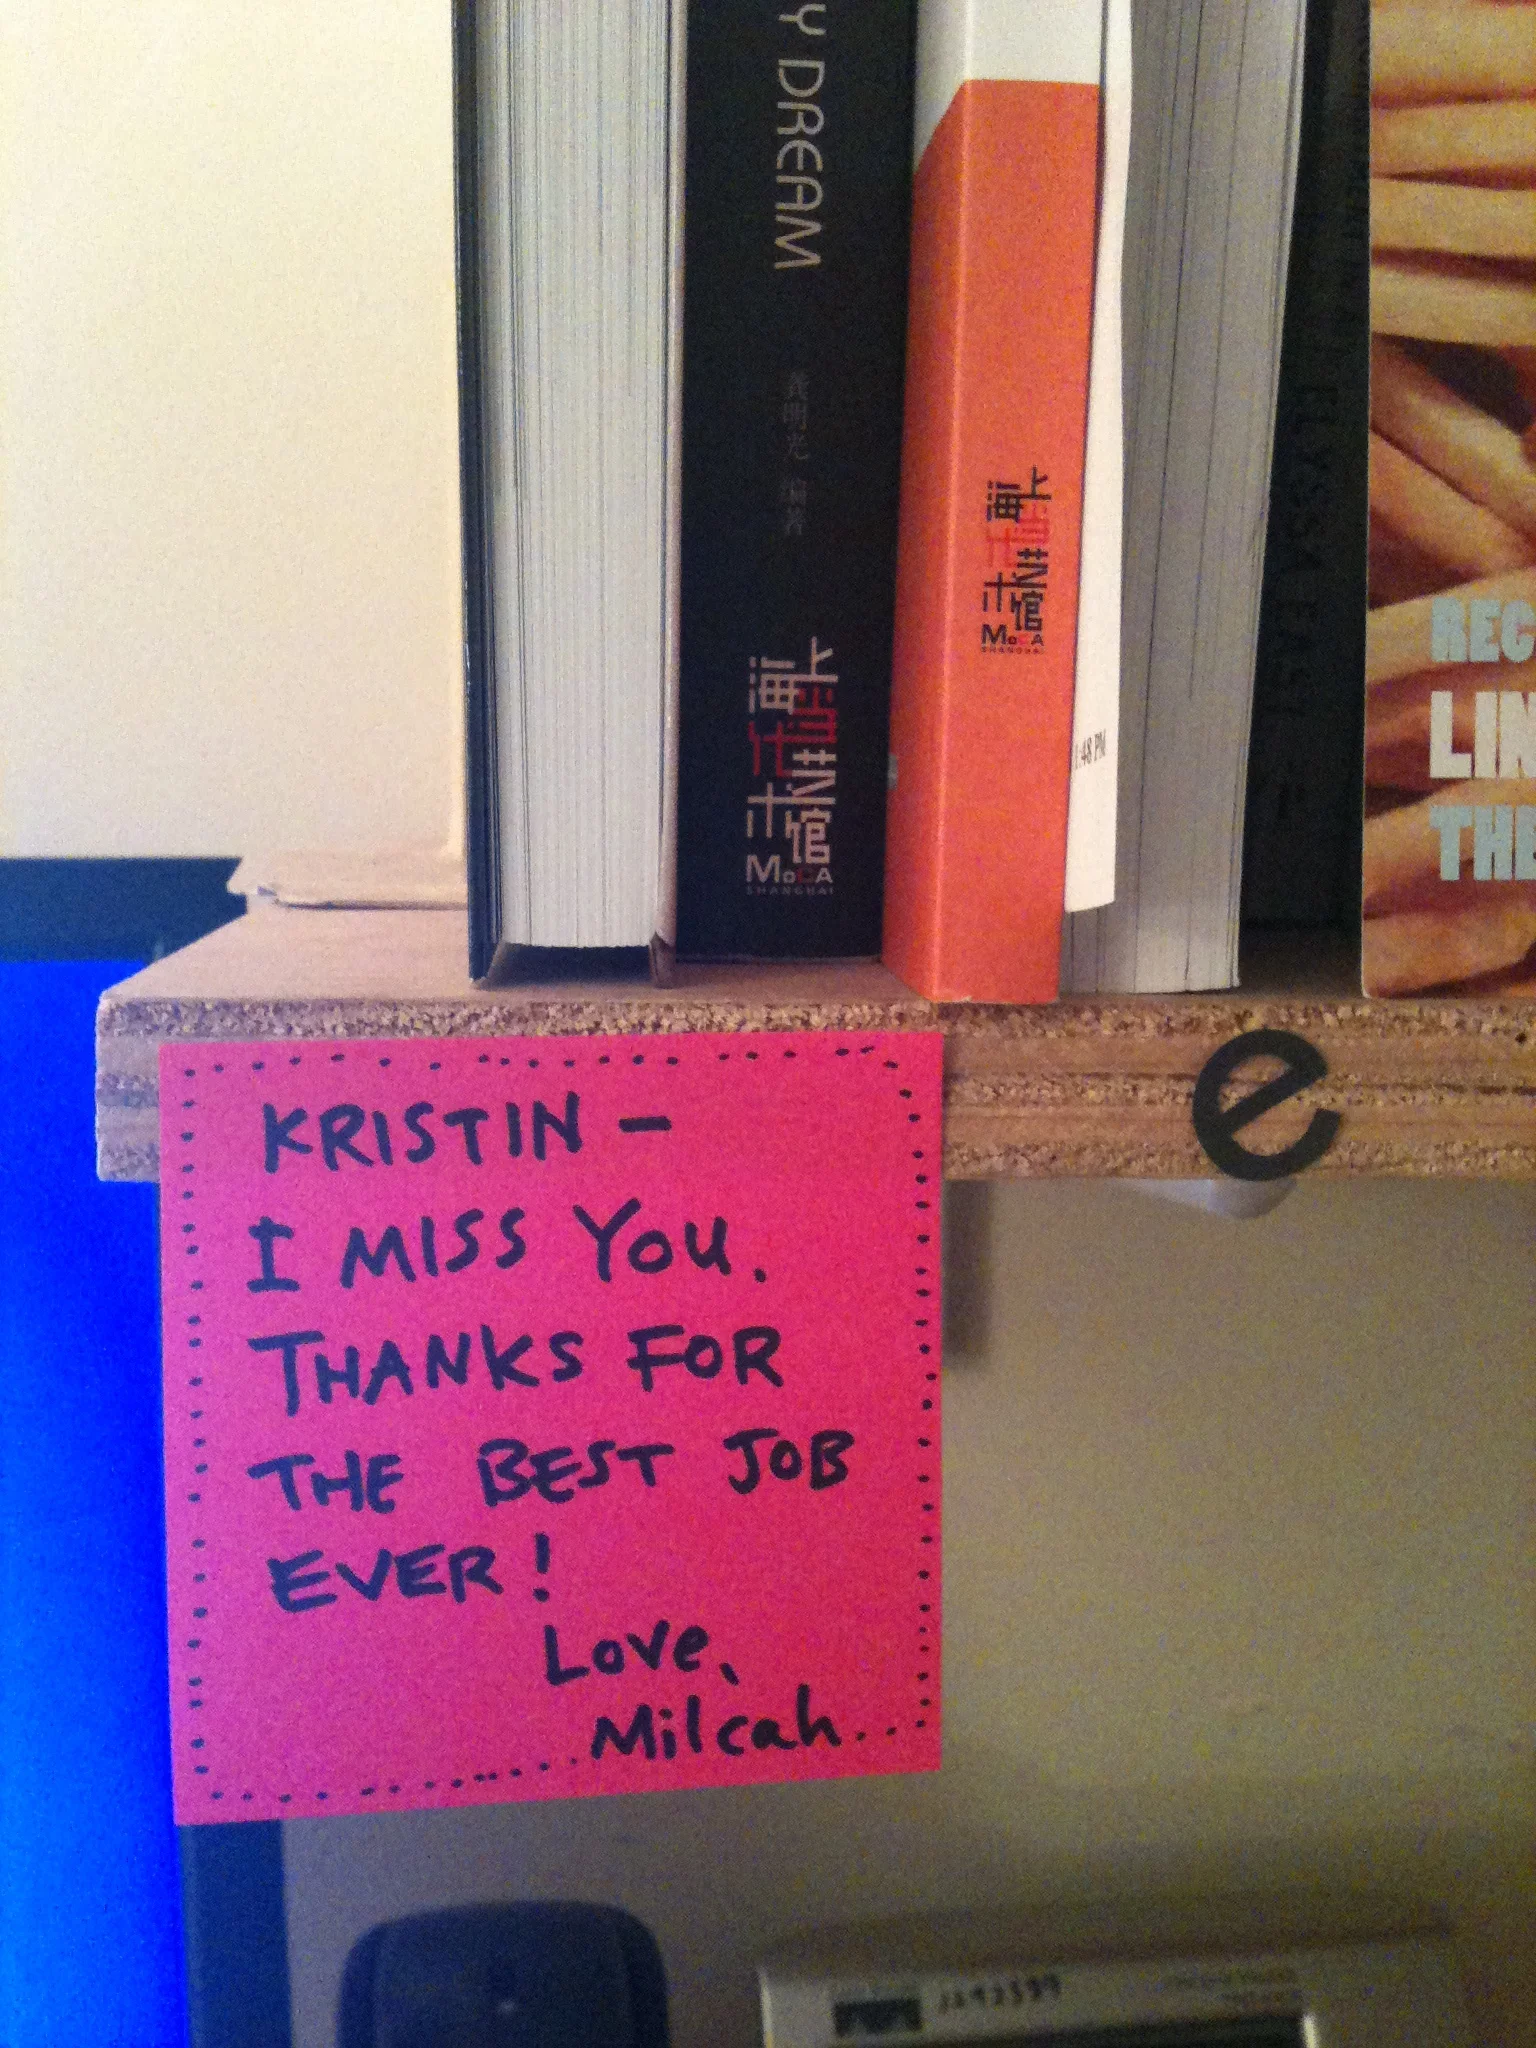 Y DREAM
龚明光 编著
上海
当代
艺术馆
MoCA
SHANGHAI
上海
当代
艺术馆
MoCA
SHANGHAI
1:48 PM
REC
LIN
THE
e
KRISTIN –
I MISS YOU.
THANKS FOR
THE BEST JOB
EVER!
Love,
Milcah